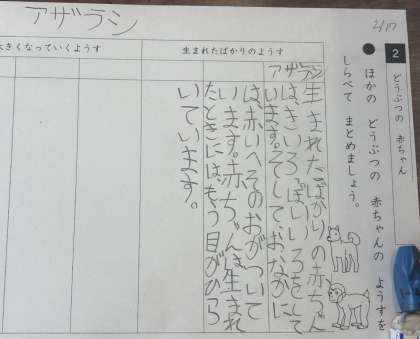 2 どうぶつの 赤ちゃん
● ほかの どうぶつの 赤ちゃんの ようすを
しらべて まとめましょう。
アザラシ
生まれたばかりのようす
大きくなっていくようす
アザラシ
生まれたばかりの赤ちゃん
は、きいろっぽいいろをして
います。そして、おなかに
は、赤いへそのおがついて
います。赤ちゃんは生まれ
たときにはもう目がひら
いています。